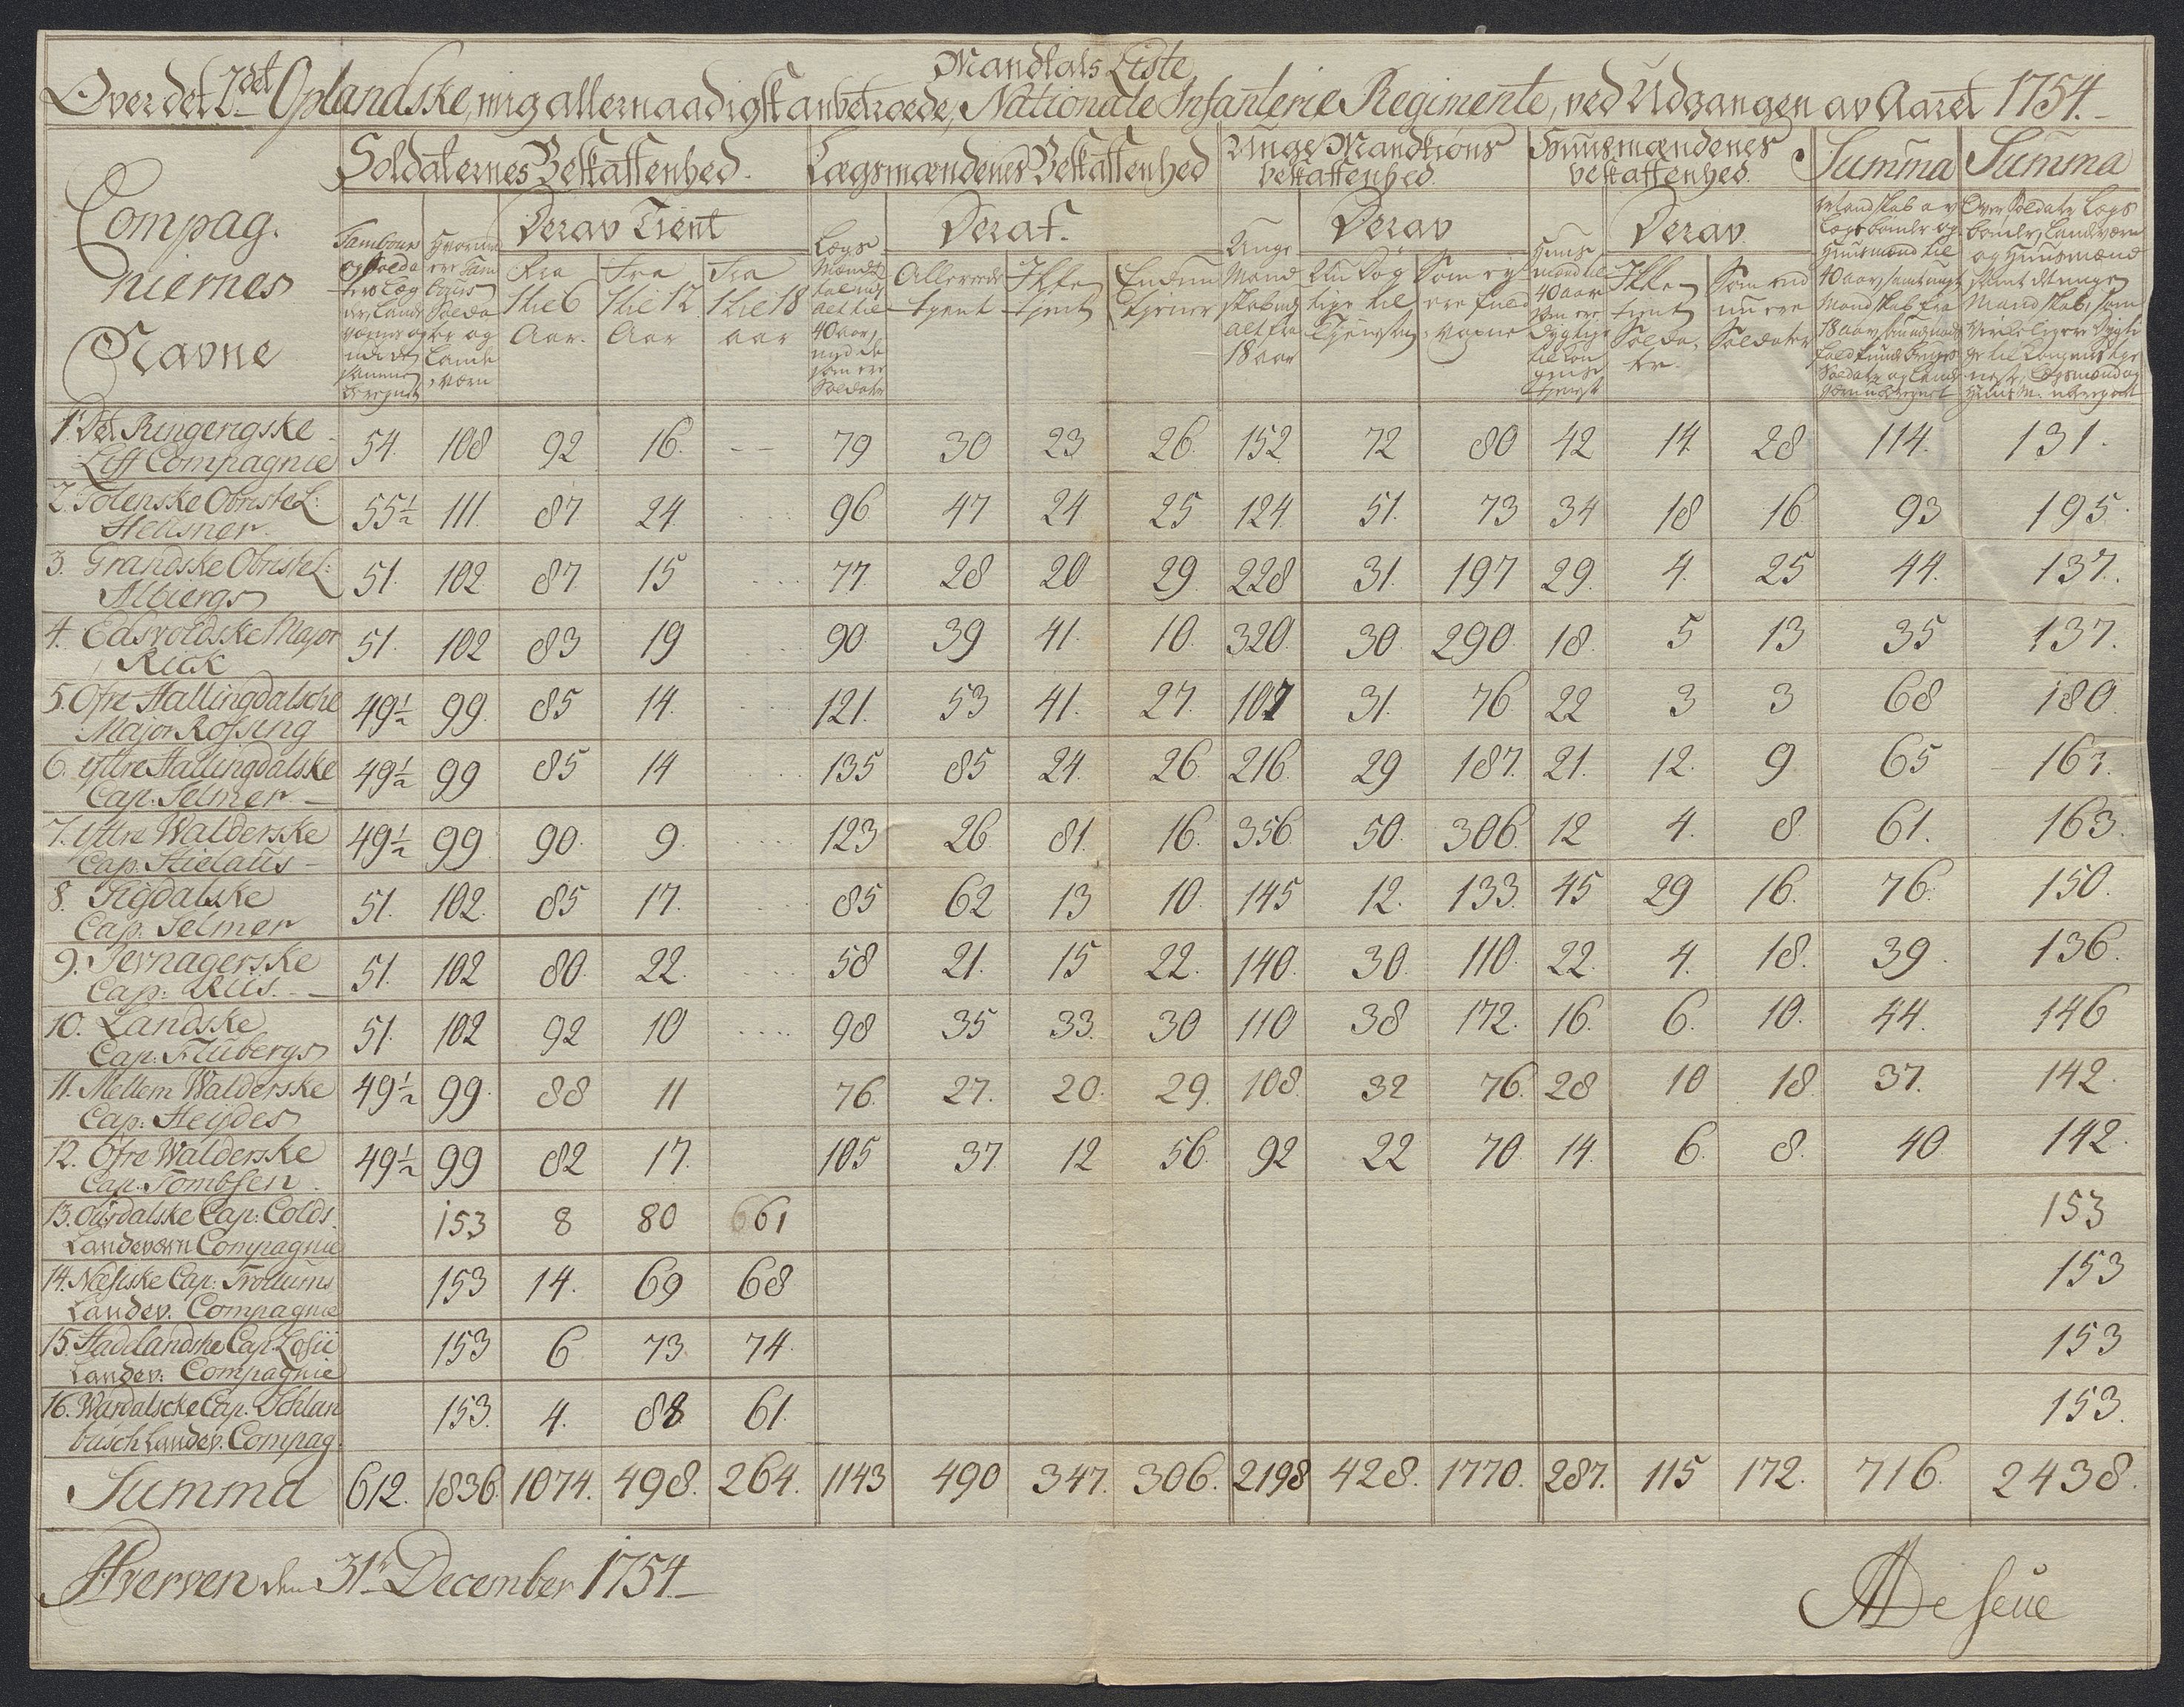 Mandtals Liste
Over det 2det Oplandske, mig allernaadigst anbetroede, Nationale Infanterie Regimente, ved Udgangen av Aaret 1754.
Compag. niernes Navne
Soldaternes Beskaffenhed.
Lægsmændenes Beskaffenhed
Unge Mandkiøns beskaffenhed.
Huusmændenes beskaffenhed.
Summa
Summa
Derav Tient
Deraf.
Derav
Derav
Fra 1 til 6 Aar.
Fra 1 til 12 Aar
Fra 1 til 18 aar
Allerede tient
Ikke tient
Endnu tiener
Ikke tient Soldater.
Som end nu ere Soldater
1. Det Ringerigske Liff Compagnie 54. 108 92 16. -- 79 30 23 26. 152 72 80 42 14. 28 114. 131.
2. Totenske Obriste L: Heusner. 55½ 111. 87 24. .... 96. 47 24 25 124. 51. 73 34 18 16 93 195.
3. Grandske Obriste L: Albiergs 51. 102 87. 15 .... 77 28 20 29. 228 31. 197 29. 4. 25 44. 137.
4. Edsvoldske Major Rick 51. 102 83 19 .... 90. 39 41. 10. 320. 30. 290. 18. 5 13 35 137.
5. Øfre Hallingdalsche Major Rossing 49½ 99. 85 14. .... 121. 53 41. 27. 107 31. 76 22 3 3 68 180.
6. Yttre Hallingdalske Cap. Selmer 49½ 99 85 14 .... 135 85 24. 26. 216. 29 187. 21. 12. 9 65 163.
7. Yttre Walderske Cap. Hielaus 49½ 99 90. 9. .... 123 26 81. 16. 356. 50. 306. 12 4. 8 61. 163.
8. Sigdalske Cap. Selmer 51. 102. 85 17. .... 85 62 13 10. 145 12. 133. 45 29 16. 76. 150.
9. Jevnagerske Cap: Riis. 51. 102 80. 22. .... 58 21. 15 22. 140. 30. 110. 22. 4. 18. 39. 136.
10. Landske Cap: Flubergs 51. 102 92 10 .... 98 35 33. 30 110 38 172. 16. 6. 10. 44. 146
11. Mellem Walderske Cap: Heydes 49½ 99. 88 11 76. 27. 20. 29. 108. 32 76. 28 10 18. 37. 142.
12. Øfre Walderske Cap. Tombsen. 49½ 99 82 17. 105 37. 12 56. 92 22 70 14. 6. 8. 40. 142.
13. Ourdalske Cap: Colds. Landeværn Compagnie 153 8 80 61 153
14. Næsiske Cap: Trollums Landev. Compagnie 153 14. 69 68 153
15. Hadelandske Cap. Losii Landev: Compagnie 153 6 73. 74. 153
16. Wardalscke Cap. Schlanbusch Landev. Compag. 153. 4. 88 61. 153.
Summa 612. 1836. 1074. 498. 264. 1143 490 347. 306. 2198 428. 1770. 287. 115 172. 716. 2438.
Hverven den 31te December 1754.
AD e Seue